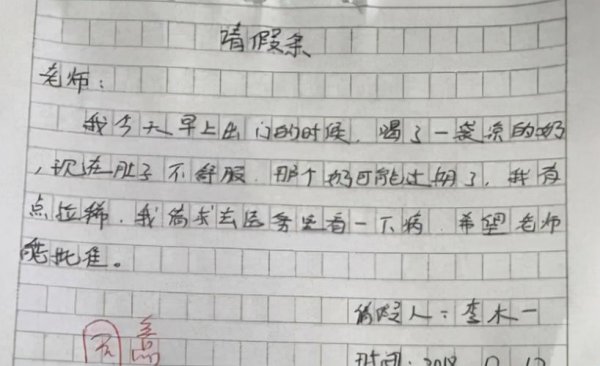 请假条
老师：
我今天早上出门的时候，喝了一袋凉的奶
，现在肚子不舒服．那个奶可能过期了，我有
点拉稀．我请求去医务室看一下病．希望老师
能批准。
请假人：李木一
时间：2018